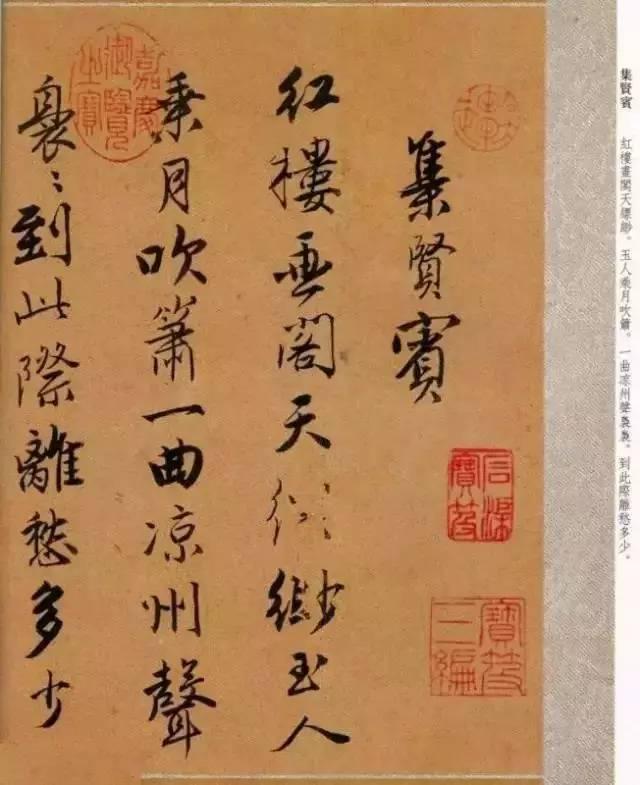 集賢賓　紅樓畫閣天縹緲。玉人乘月吹簫。一曲凉州聲裊裊。到此際離愁多少。
集賢賓
石渠寶笈
寶笈三編
紅樓畫閣天縹緲玉人
乘月吹簫一曲凉州聲
嘉慶御覽之寶
裊〻到此際離愁多少